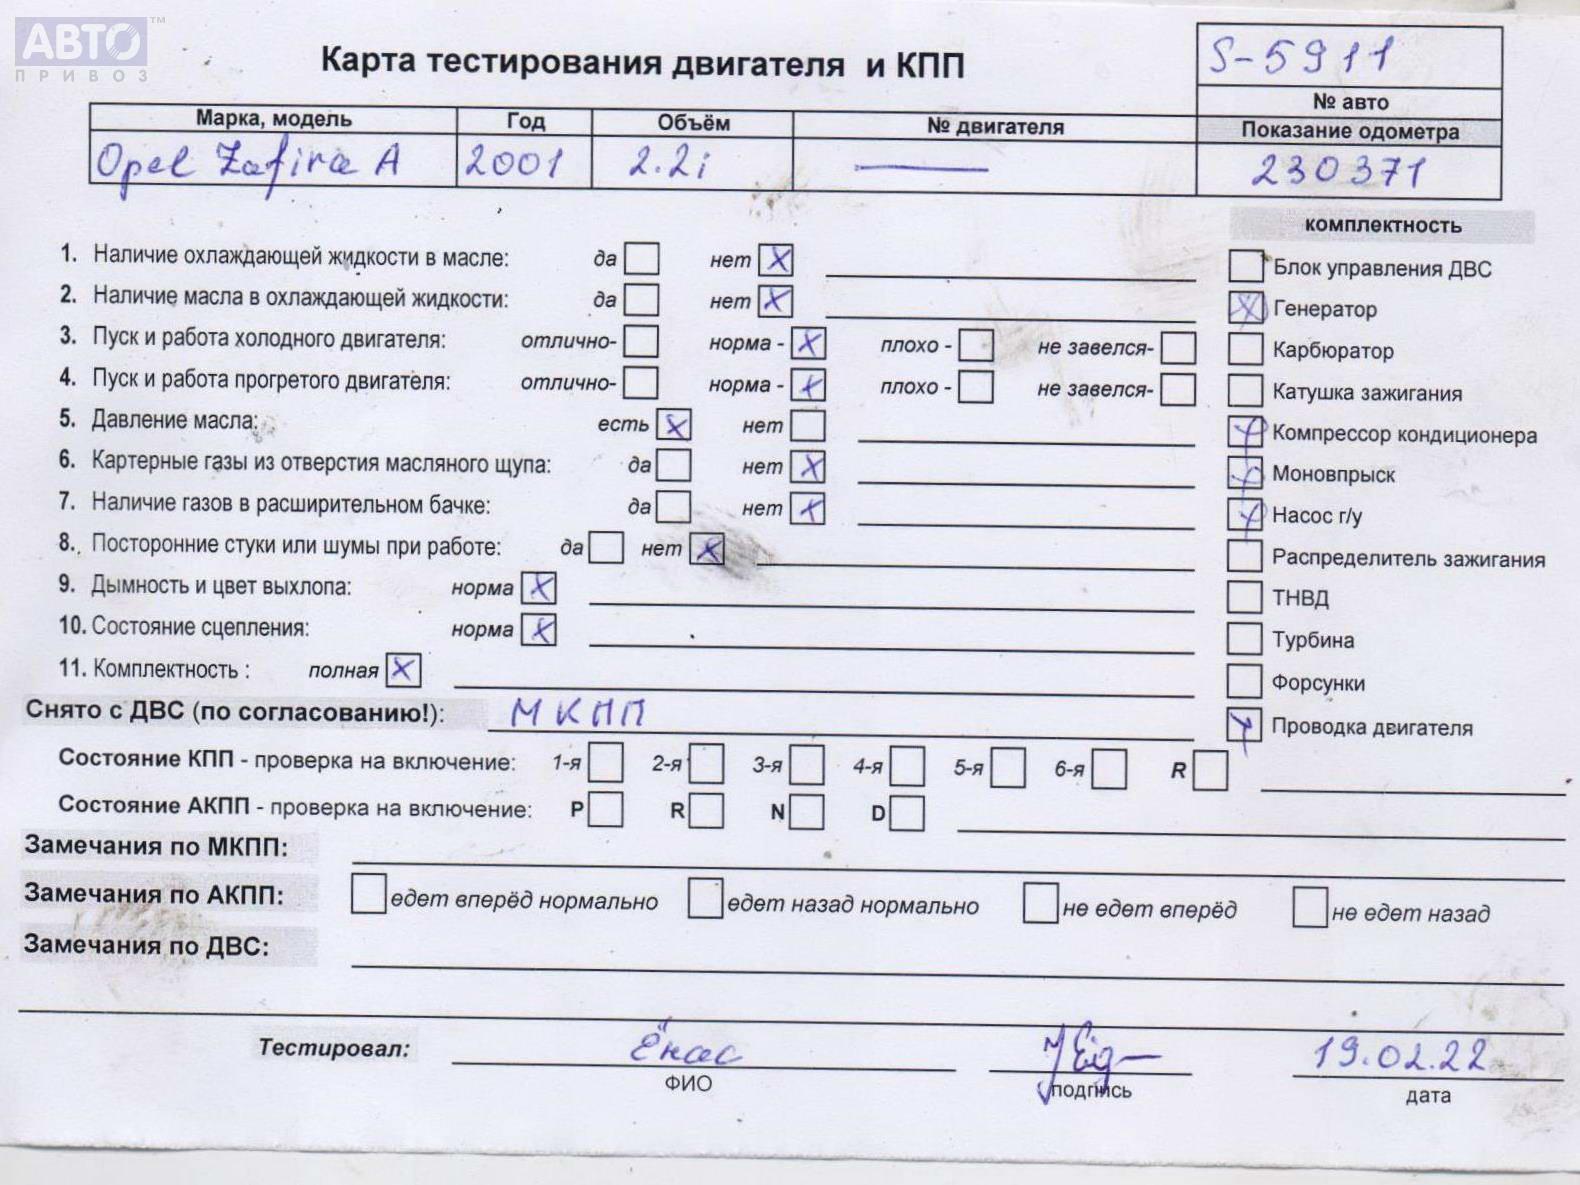 АВТО™
ПРИВОЗ
Карта тестирования двигателя и КПП
S-5911
№ авто
Марка, модель Год Объём № двигателя Показание одометра
Opel Zafira A 2001 2.2i — 230371
комплектность
1. Наличие охлаждающей жидкости в масле: да нет X
Блок управления ДВС
2. Наличие масла в охлаждающей жидкости: да нет X
Генератор X
3. Пуск и работа холодного двигателя: отлично- норма - X плохо - не завелся-
Карбюратор
4. Пуск и работа прогретого двигателя: отлично- норма - X плохо - не завелся-
Катушка зажигания
5. Давление масла: есть X нет
Компрессор кондиционера X
6. Картерные газы из отверстия масляного щупа: да нет X
Моновпрыск X
7. Наличие газов в расширительном бачке: да нет X
Насос г/у X
8. Посторонние стуки или шумы при работе: да нет X
Распределитель зажигания
9. Дымность и цвет выхлопа: норма X
ТНВД
10. Состояние сцепления: норма X
Турбина
11. Комплектность : полная X
Форсунки
Снято с ДВС (по согласованию!): МКПП
Проводка двигателя X
Состояние КПП - проверка на включение: 1-я 2-я 3-я 4-я 5-я 6-я R
Состояние АКПП - проверка на включение: P R N D
Замечания по МКПП:
Замечания по АКПП: едет вперёд нормально едет назад нормально не едет вперёд не едет назад
Замечания по ДВС:
Тестировал: Ёнас 19.02.22
ФИО подпись дата